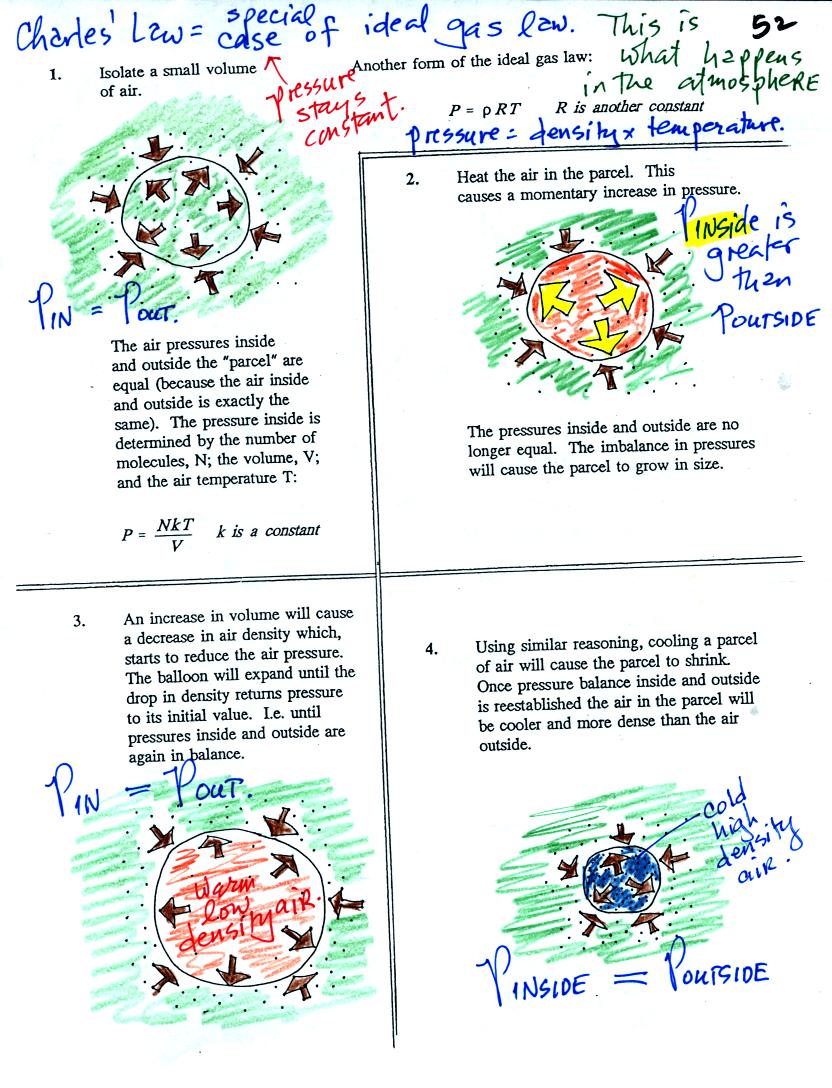 Charles' Law = special case of ideal gas law.
This is what happens in the atmosphere
52
Pressure stays constant.
1. Isolate a small volume
of air.
Another form of the ideal gas law:
P = ρRT R is another constant
pressure = density x temperature.
PIN = POUT.
The air pressures inside
and outside the "parcel" are
equal (because the air inside
and outside is exactly the
same). The pressure inside is
determined by the number of
molecules, N; the volume, V;
and the air temperature T:
P = NkT / V k is a constant
2. Heat the air in the parcel. This
causes a momentary increase in pressure.
PINSide is
greater
than
POUTSIDE
The pressures inside and outside are no
longer equal. The imbalance in pressures
will cause the parcel to grow in size.
3. An increase in volume will cause
a decrease in air density which,
starts to reduce the air pressure.
The balloon will expand until the
drop in density returns pressure
to its initial value. I.e. until
pressures inside and outside are
again in balance.
PIN = POUT.
warm
low
density air.
4. Using similar reasoning, cooling a parcel
of air will cause the parcel to shrink.
Once pressure balance inside and outside
is reestablished the air in the parcel will
be cooler and more dense than the air
outside.
cold
high
density
air.
PINSIDE = POUTSIDE